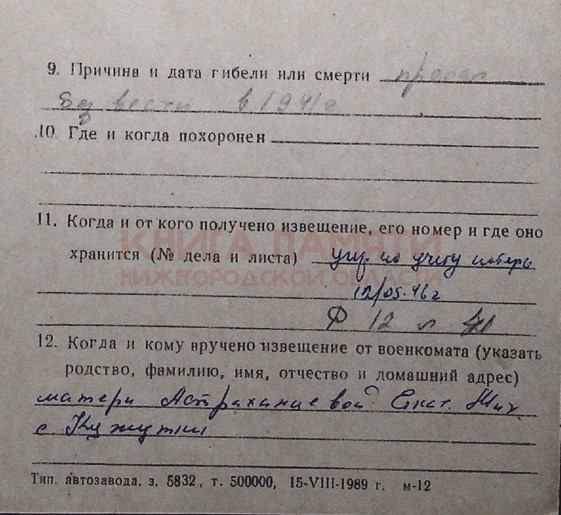 9. Причина и дата гибели или смерти пропал
без вести в 1941 г
10. Где и когда похоронен
11. Когда и от кого получено извещение, его номер и где оно
КНИГА ПАМЯТИ
хранится (№ дела и листа) упр. по учету потерь
НИЖЕГОРОДСКОЙ ОБЛАСТИ
12/05-46 г
Ф 12 л
12. Когда и кому вручено извещение от военкомата (указать
родство, фамилию, имя, отчество и домашний адрес)
матери Астраханцевой Мих.
с Кужутки
Тип. автозавода, з. 5832, т. 500000, 15-VIII-1989 г. м-12